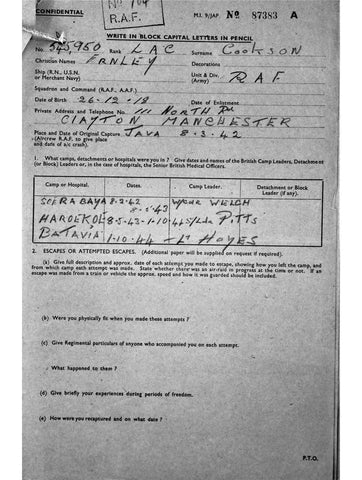 CONFIDENTIAL
No 104
R.A.F.
M.I. 9/JAP. No 87383 A
WRITE IN BLOCK CAPITAL LETTERS IN PENCIL
No. 545,950 Rank LAC Surname COOKSON
Christian Names ERNLEY Decorations
Ship (R.N., U.S.N. or Merchant Navy) Unit & Div. (Army) RAF
Squadron and Command (R.A.F., A.A.F.)
Date of Birth 26-12-18 Date of Enlistment
Private Address and Telephone No. 111 NORTH Rd
CLAYTON MANCHESTER
Place and Date of Original Capture JAVA 8-3-42
(Aircrew R.A.F. to give place
and date of a/c crash).
1. What camps, detachments or hospitals were you in? Give dates and names of the British Camp Leaders, Detachment
(or Block) Leaders or, in the case of hospitals, the Senior British Medical Officers.
Camp or Hospital. Dates. Camp Leader. Detachment or Block Leader (if any).
SOERABAYA 8-3-42 WELCH
8-5-43
HAROEKOE 8-5-43-1-10-44 S/Ldr PITTS
BATAVIA 1-10-44 - Lt NOYES
2. ESCAPES OR ATTEMPTED ESCAPES. (Additional paper will be supplied on request if required).
(a) Give full description and approx. date of each attempt you made to escape, showing how you left the camp, and
from which camp each attempt was made. State whether there was an air-raid in progress at the time or not. If an
escape was made from a train or vehicle the approx. speed and how it was guarded should be included.
(b) Were you physically fit when you made these attempts?
(c) Give Regimental particulars of anyone who accompanied you on each attempt.
What happened to them?
(d) Give briefly your experiences during periods of freedom.
(e) How were you recaptured and on what date?
P.T.O.